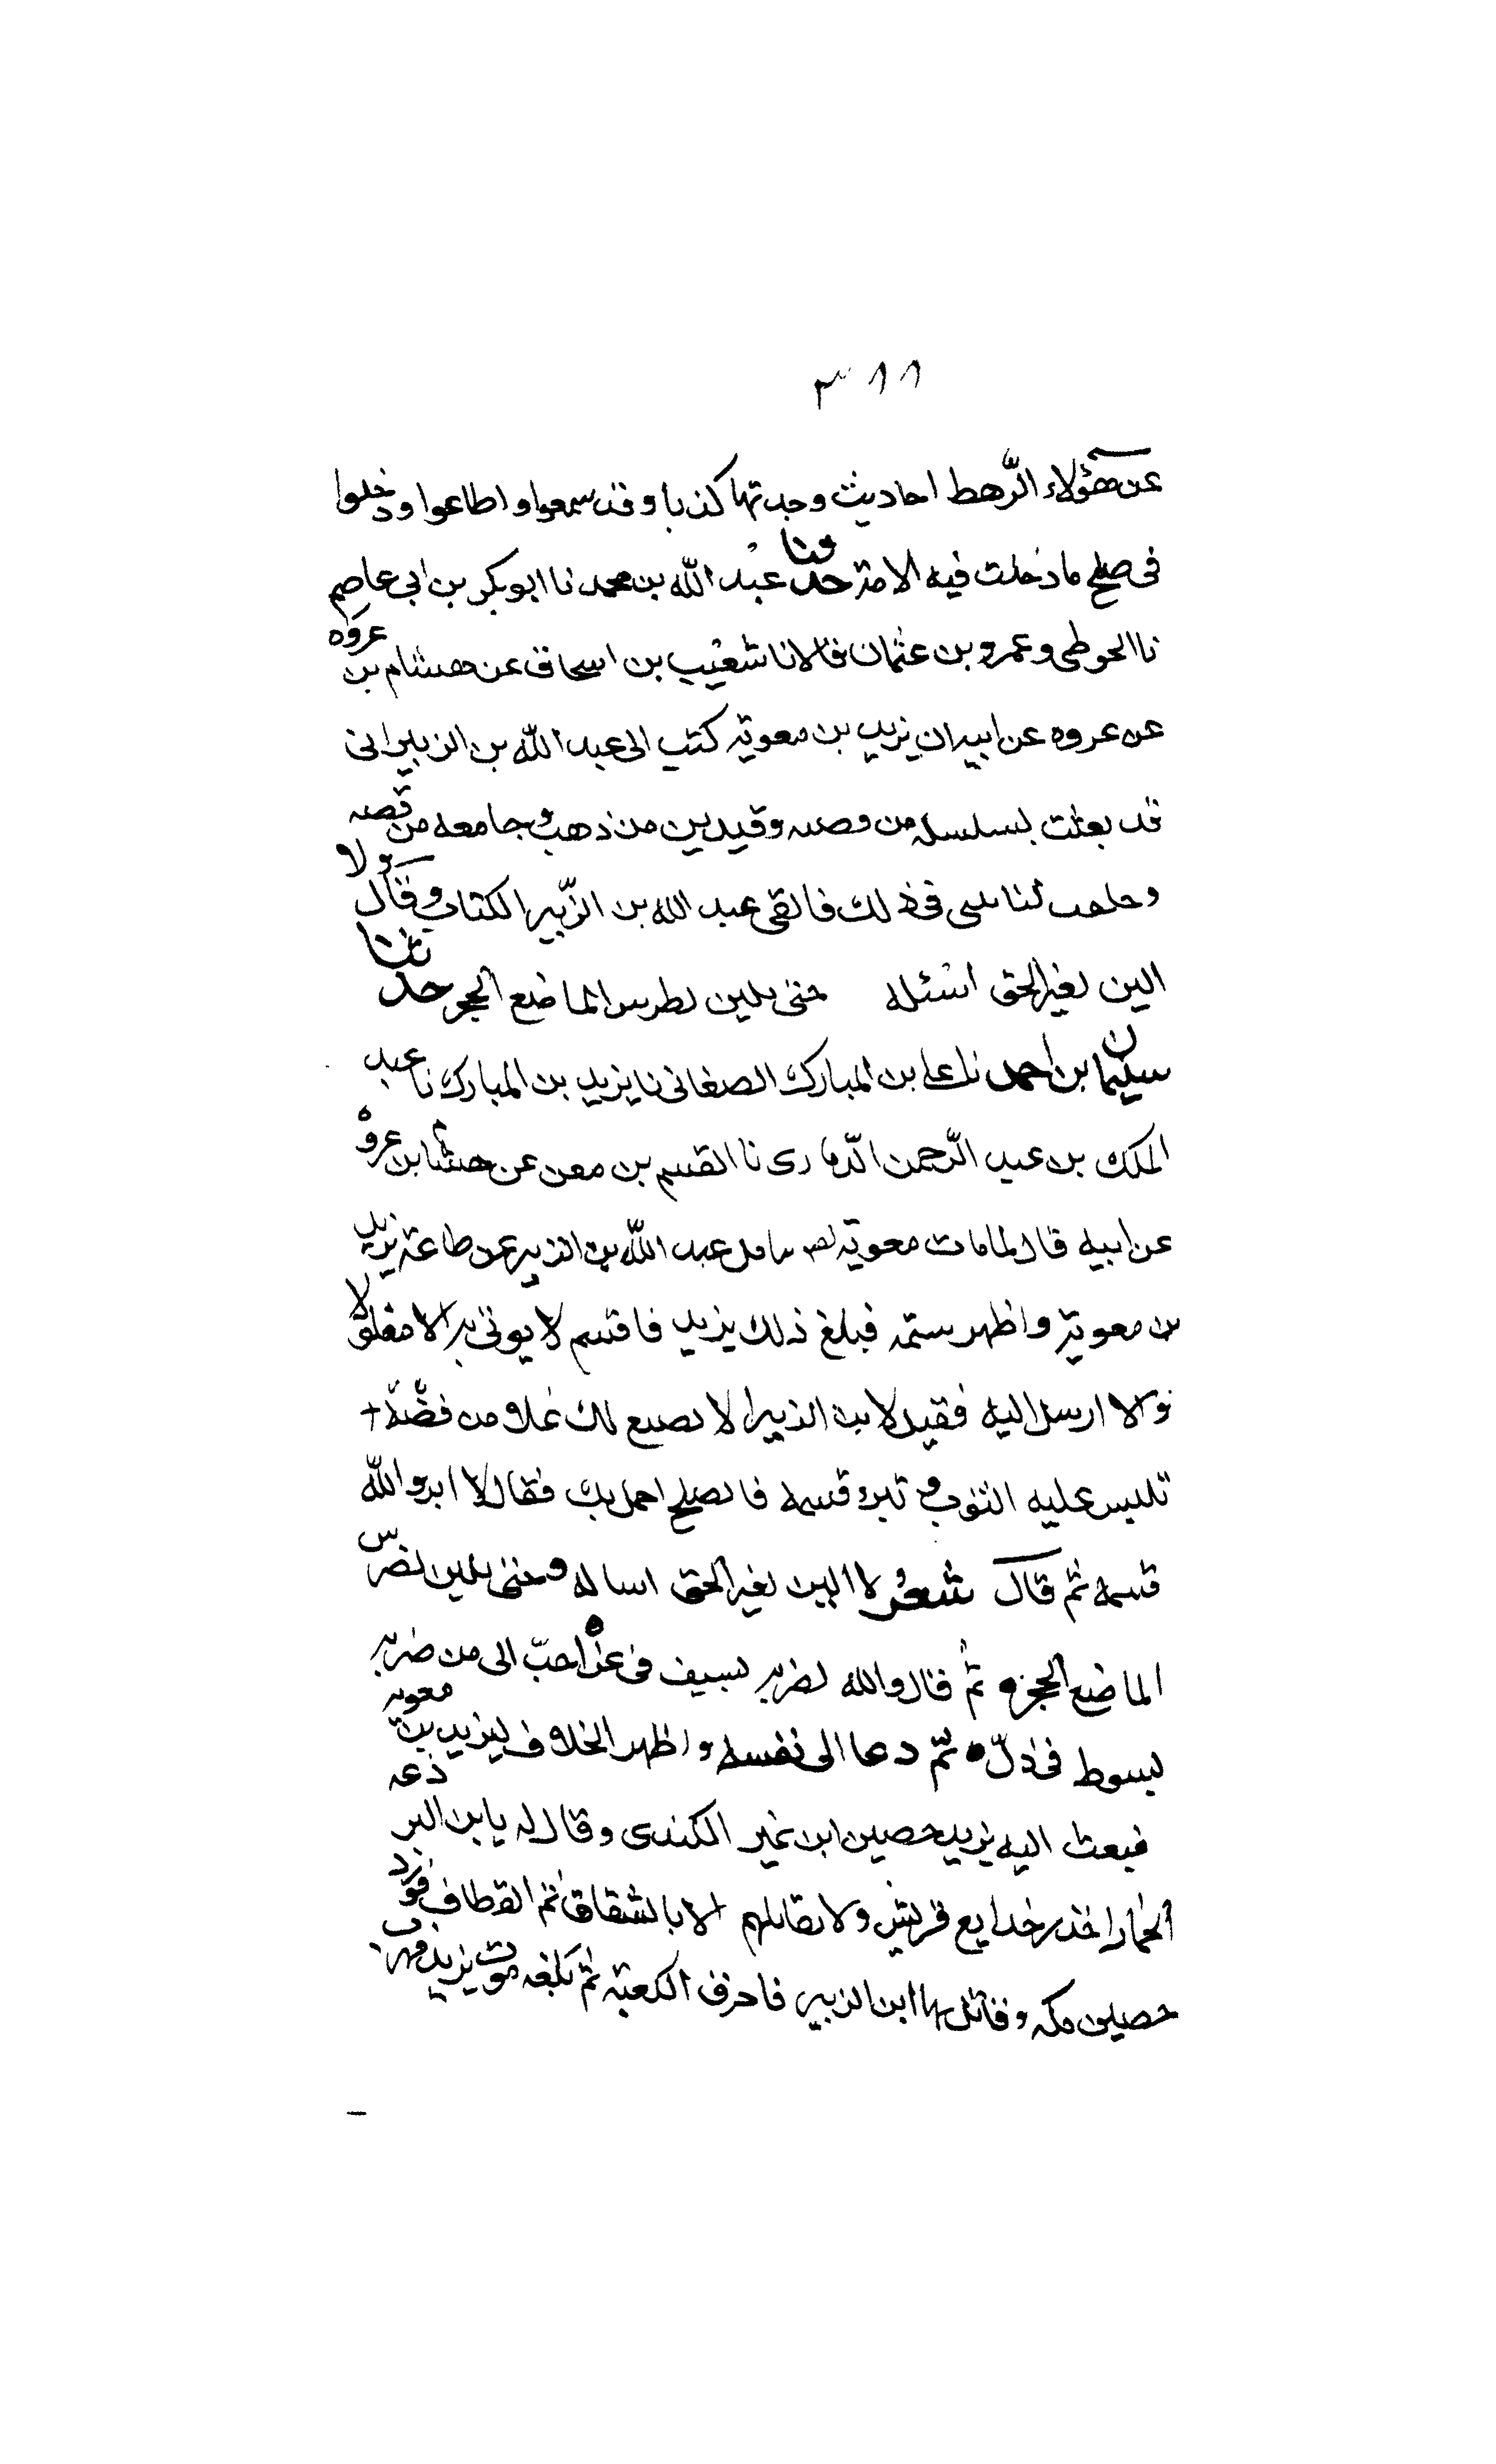 ٣٨٨
عن هؤلاء الرّهط احاديث وجدتها كذبا وقد سمعوا واطاعوا ودخلوا
فى صلح ما دخلت فيه الامة حدثنا عبد الله بن محمد نا ابو بكر بن ابي عاصم
نا الحوطى وعمرو بن عثمان قالا نا شعيب بن اسحاق عن هشام بن عروه
عن عروه عن ابيه ان يزيد بن معوية كتب الى عبد الله بن الزبير انى
قد بعثت بسلسله من فضه وقيدين من ذهب وجامعه من فضه
وحلفت لتاتينى فى ذلك فالقى عبد الله بن الزّبير الكتاب وقال ولا
الين لغير الحق اسئله حتى يلين لضرس الماضغ الحجر حدثنا
سليمان بن احمد نا على بن المبارك الصغانى نا يزيد بن المبارك نا عبد
الملك بن عبد الرّحمن الذّمارى نا القسم بن معن عن هشام بن عروه
عن ابيه قال لما مات معوية عبد الله بن الزبير عن طاعة يزيد
بن معوية واظهر شتمه فبلغ ذلك يزيد فاقسم لا يوتى به الا مغلولا
والا ارسل اليه فقيل لابن الزبير الا نصنع لك غلا من فضّة
تلبس عليه الثوب وتبرء قسمه فالصلح اجمل بك فقال لا ابر والله
قسمه ثم قال شعر لا الين لغير الحق اساله وحتى يلين لضرس
الماضغ الحجر ثم قال والله لضربه بسيف فى عز احبّ الى من ضربه
بسوط فى ذلّ ثم دعا الى نفسه واظهر الخلاف ليزيد بن معويه
فبعث اليه يزيد حصين ابن نمير الكندى وقال له يا بن البرذعه
الحمار احذر خدايع قريش ولا تقاتلهم الا بالشقاق ثم القطاف فورد
حصين مكه وقاتل بها ابن الزبير فاحرق الكعبة ثم بلغه موت يزيد فهرب